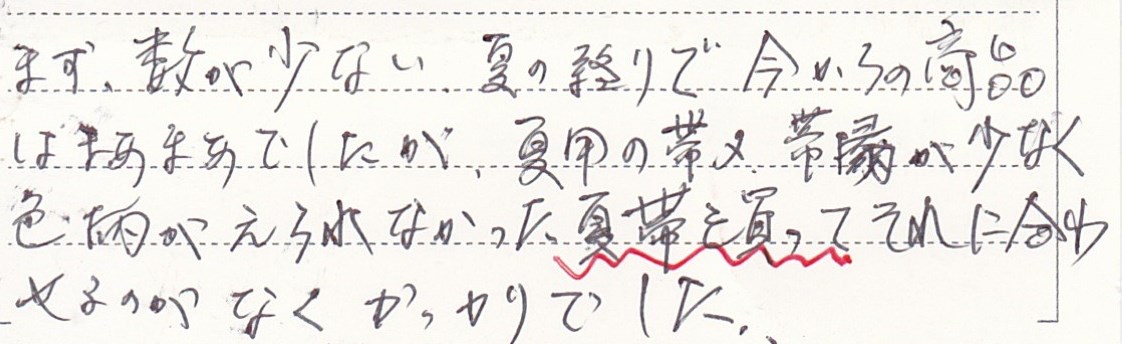 まず、数が少ない、夏の終りで今からの商品
はまあまあでしたが、夏用の帯〆、帯揚が少なく
色柄がえらべなかった、夏帯を買ってそれに合わ
せるのがなくがっかりでした、